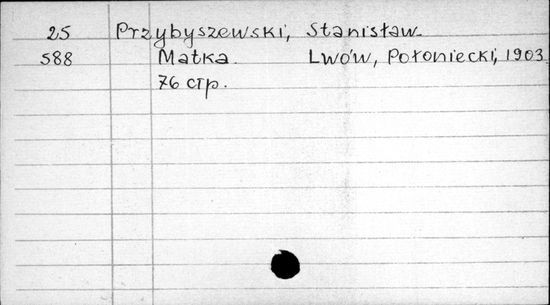 25 Przybyszewski, Stanisław.
588 Matka. Lwów, Połoniecki, 1903.
76 стр.